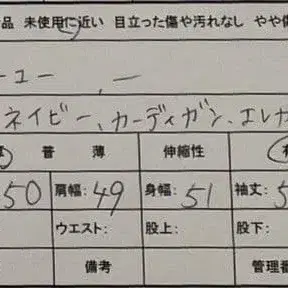 品 未使用に近い 目立った傷や汚れなし やや傷
ーユー 、ー
ネイビー、カーディガン、エレガ
普 薄 伸縮性 有
50 肩幅: 49 身幅: 51 袖丈: 5
ウエスト: 股上: 股下:
備考 管理番